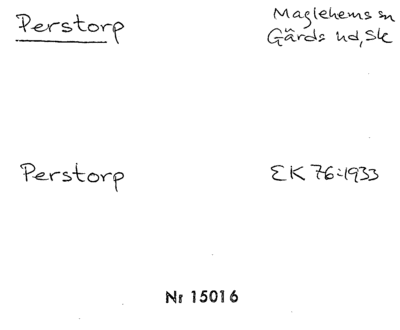 Perstorp
Maglehems sn
Gärds hd, Sk
Perstorp
EK 76:1933
Nr 15016